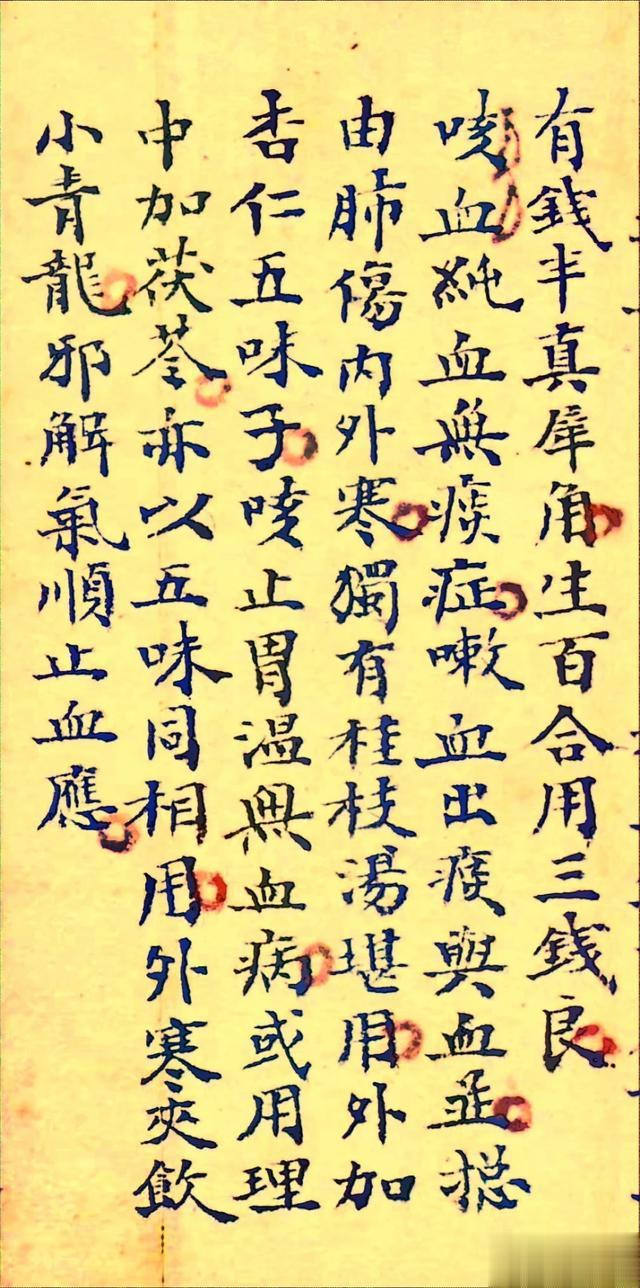 有錢半真犀角生百合用三錢良
咳血純血無痰症嗽血出痰與血並總
由肺傷內外寒獨有桂枝湯堪用外加
杏仁五味子咳止胃溫無血病或用理
中加茯苓亦以五味同相用外寒夾飲
小青龍邪解氣順止血應